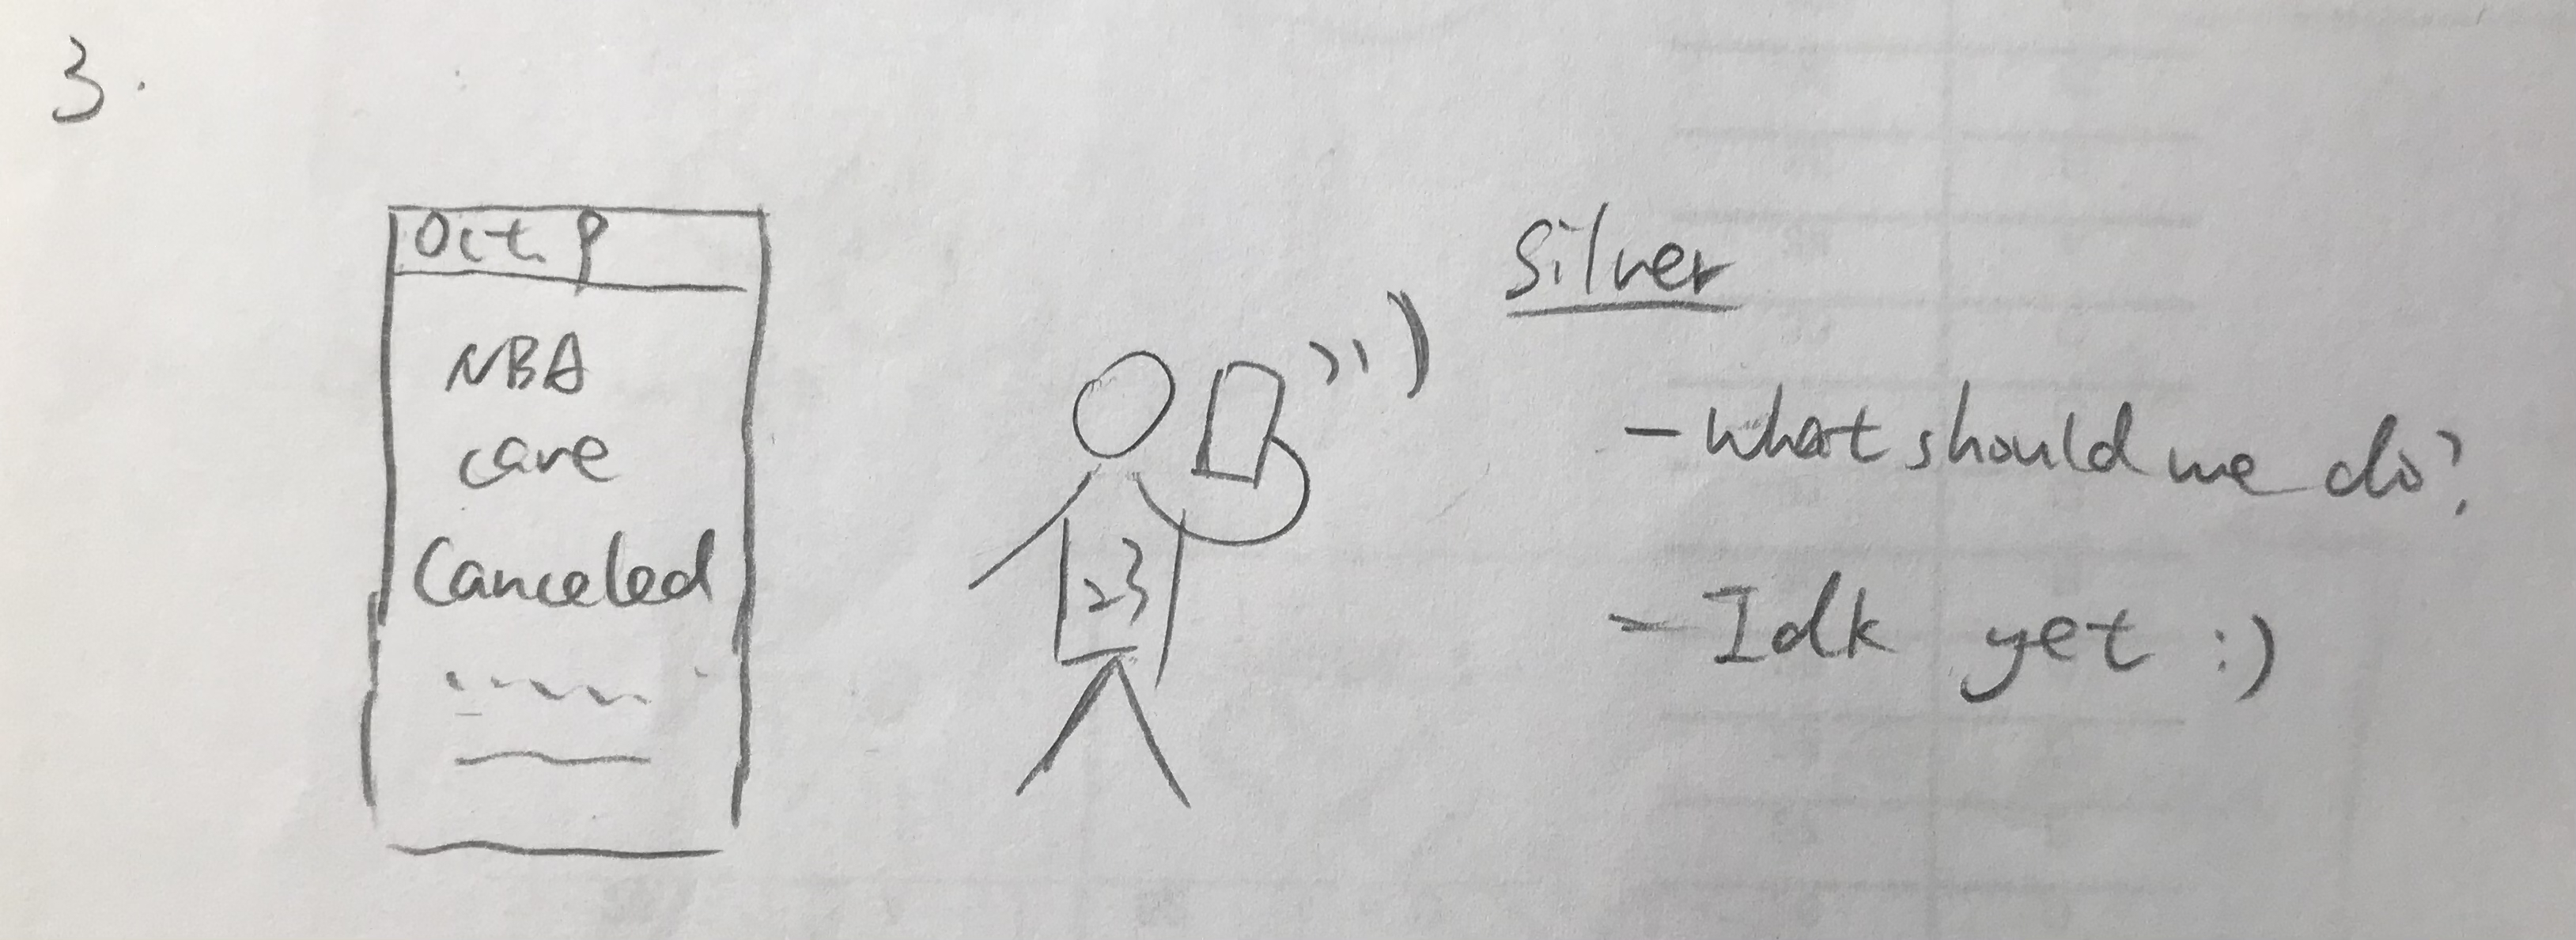 3.
Oct. 9
NBA
care
Canceled
23
Silver
- What should we do?
- Idk yet :)